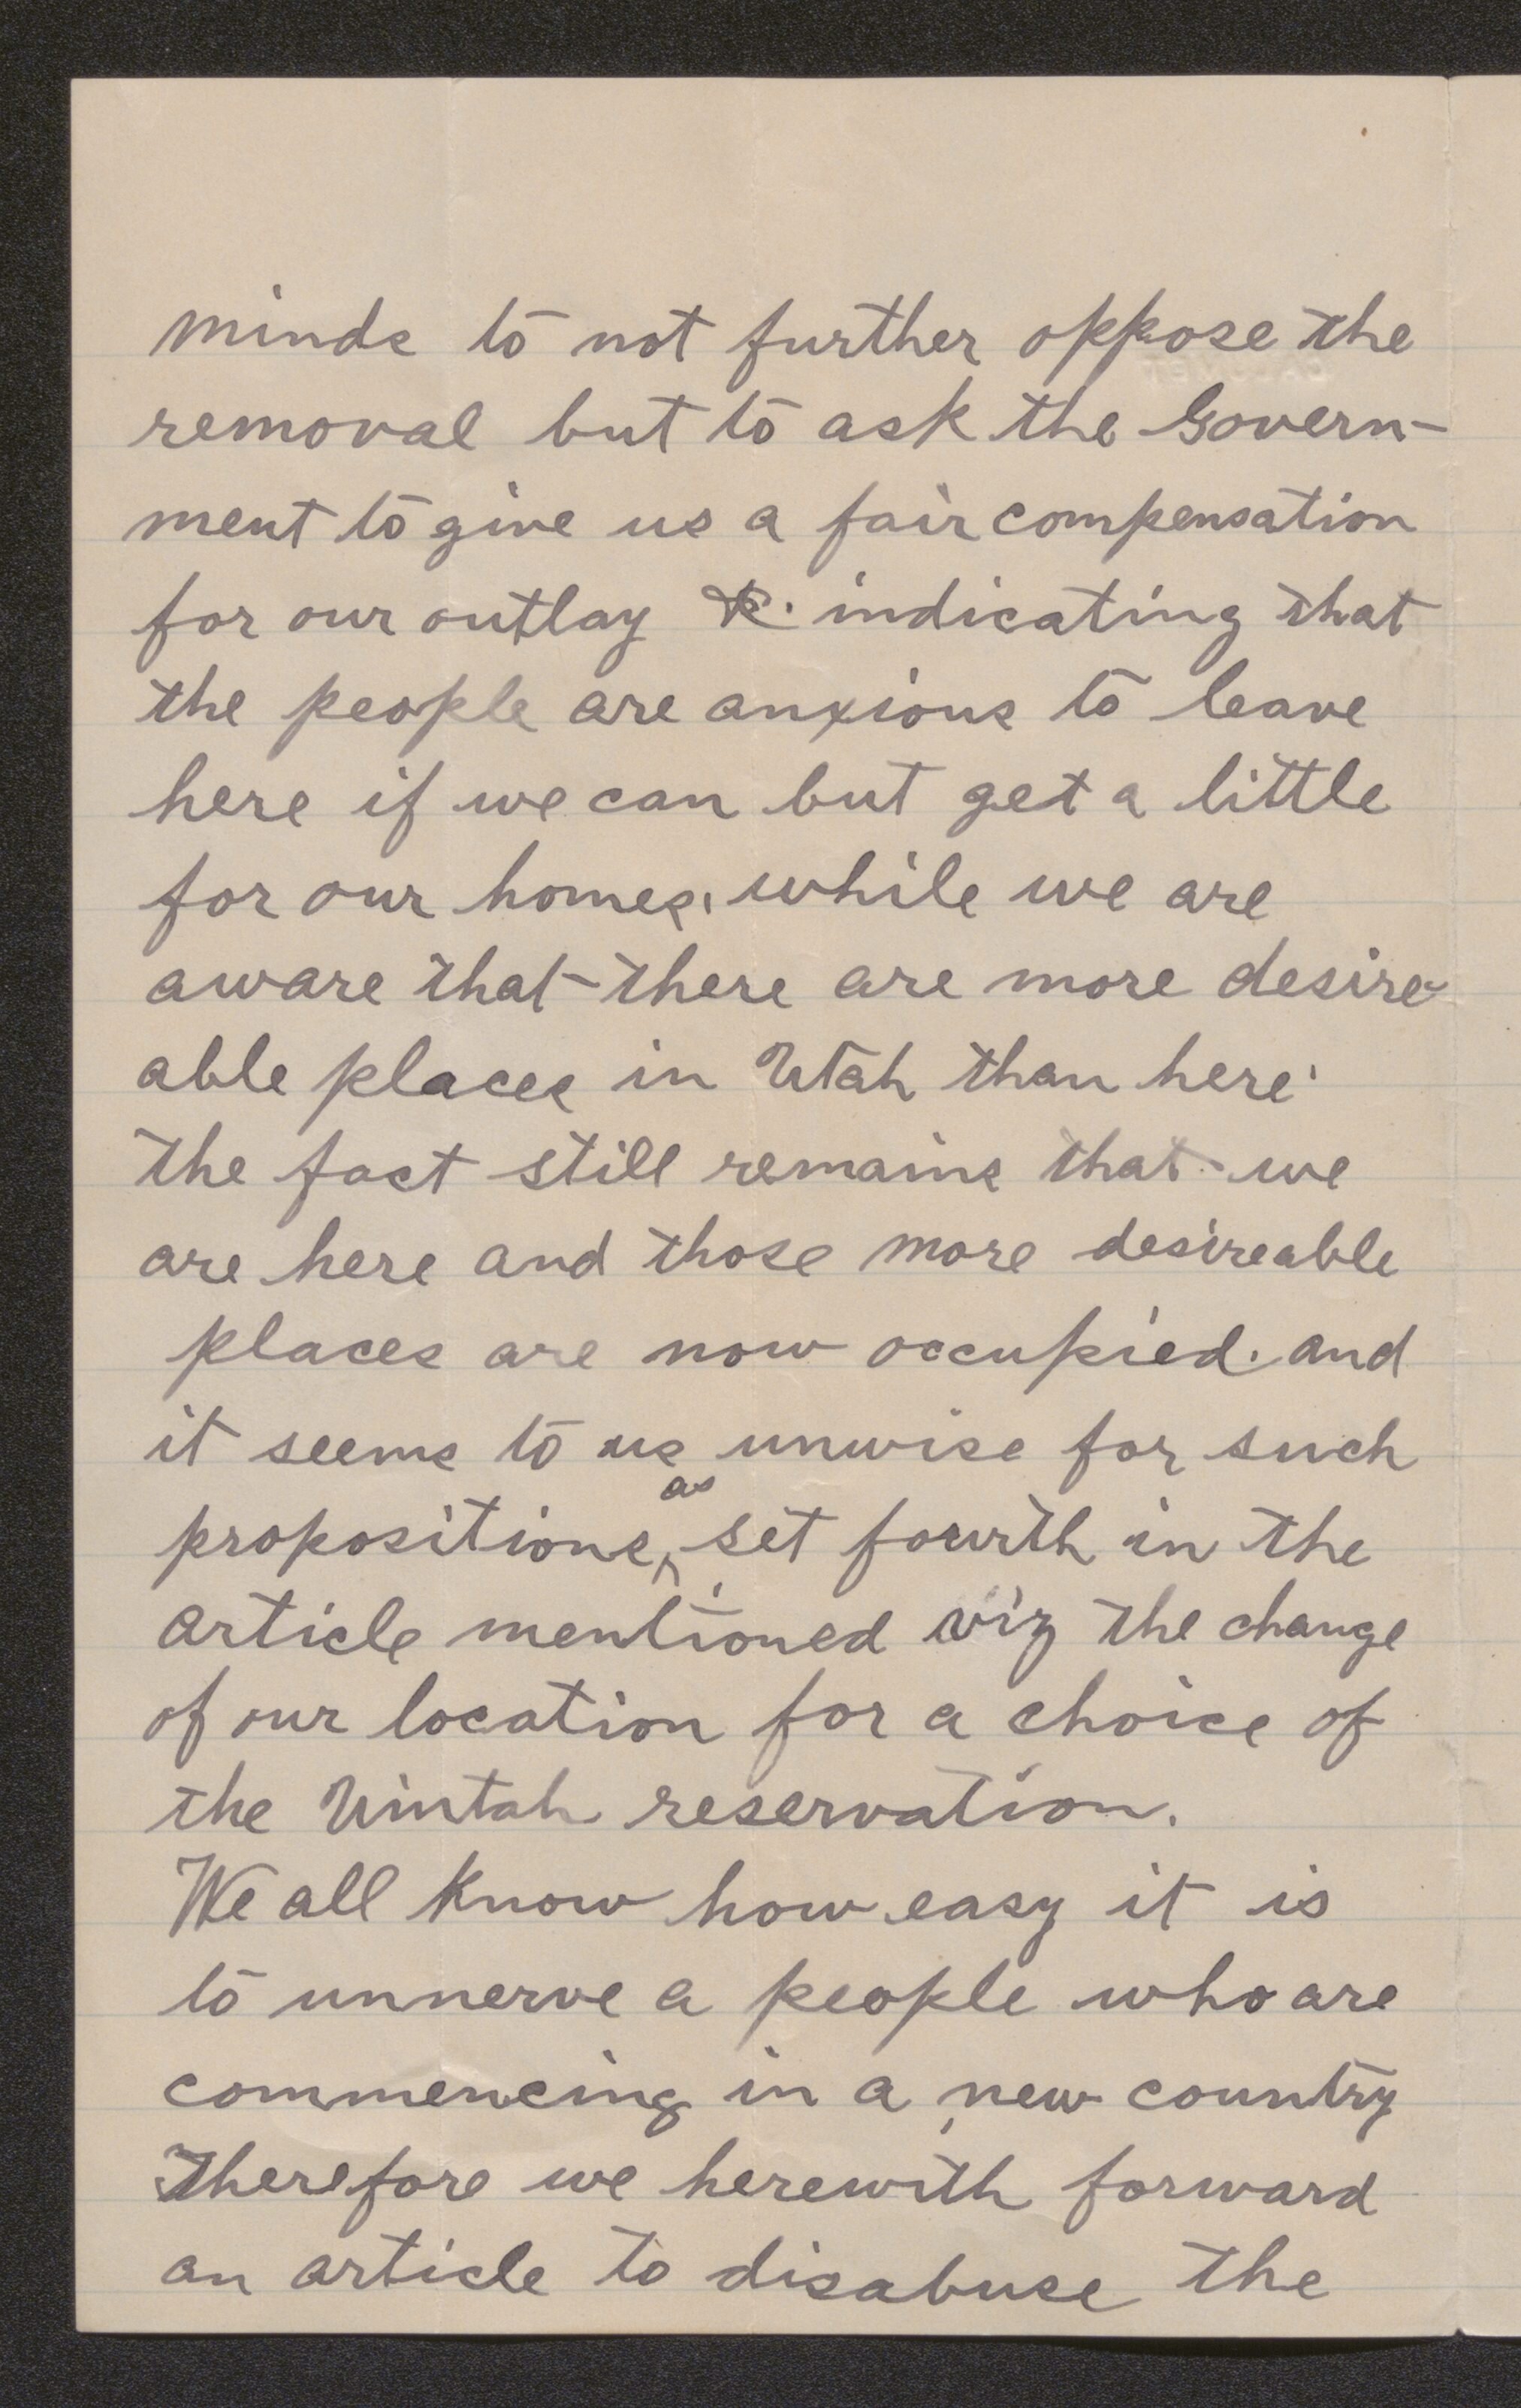 minds to not further oppose the
removal but to ask the Govern-
ment to give us a fair compensation
for our outlay &c. indicating that
the people are anxious to leave
here if we can but get a little
for our homes, while we are
aware that there are more desire-
able places in Utah than here
the fact still remains that we
are here and those more desireable
places are now occupied. and
it seems to us unwise for such
as
propositions, set fourth in the
article mentioned viz the change
of our location for a choice of
the Uintah reservation.
We all know how easy it is
to unnerve a people who are
commencing in a new country
Therefore we herewith forward
an article to disabuse the